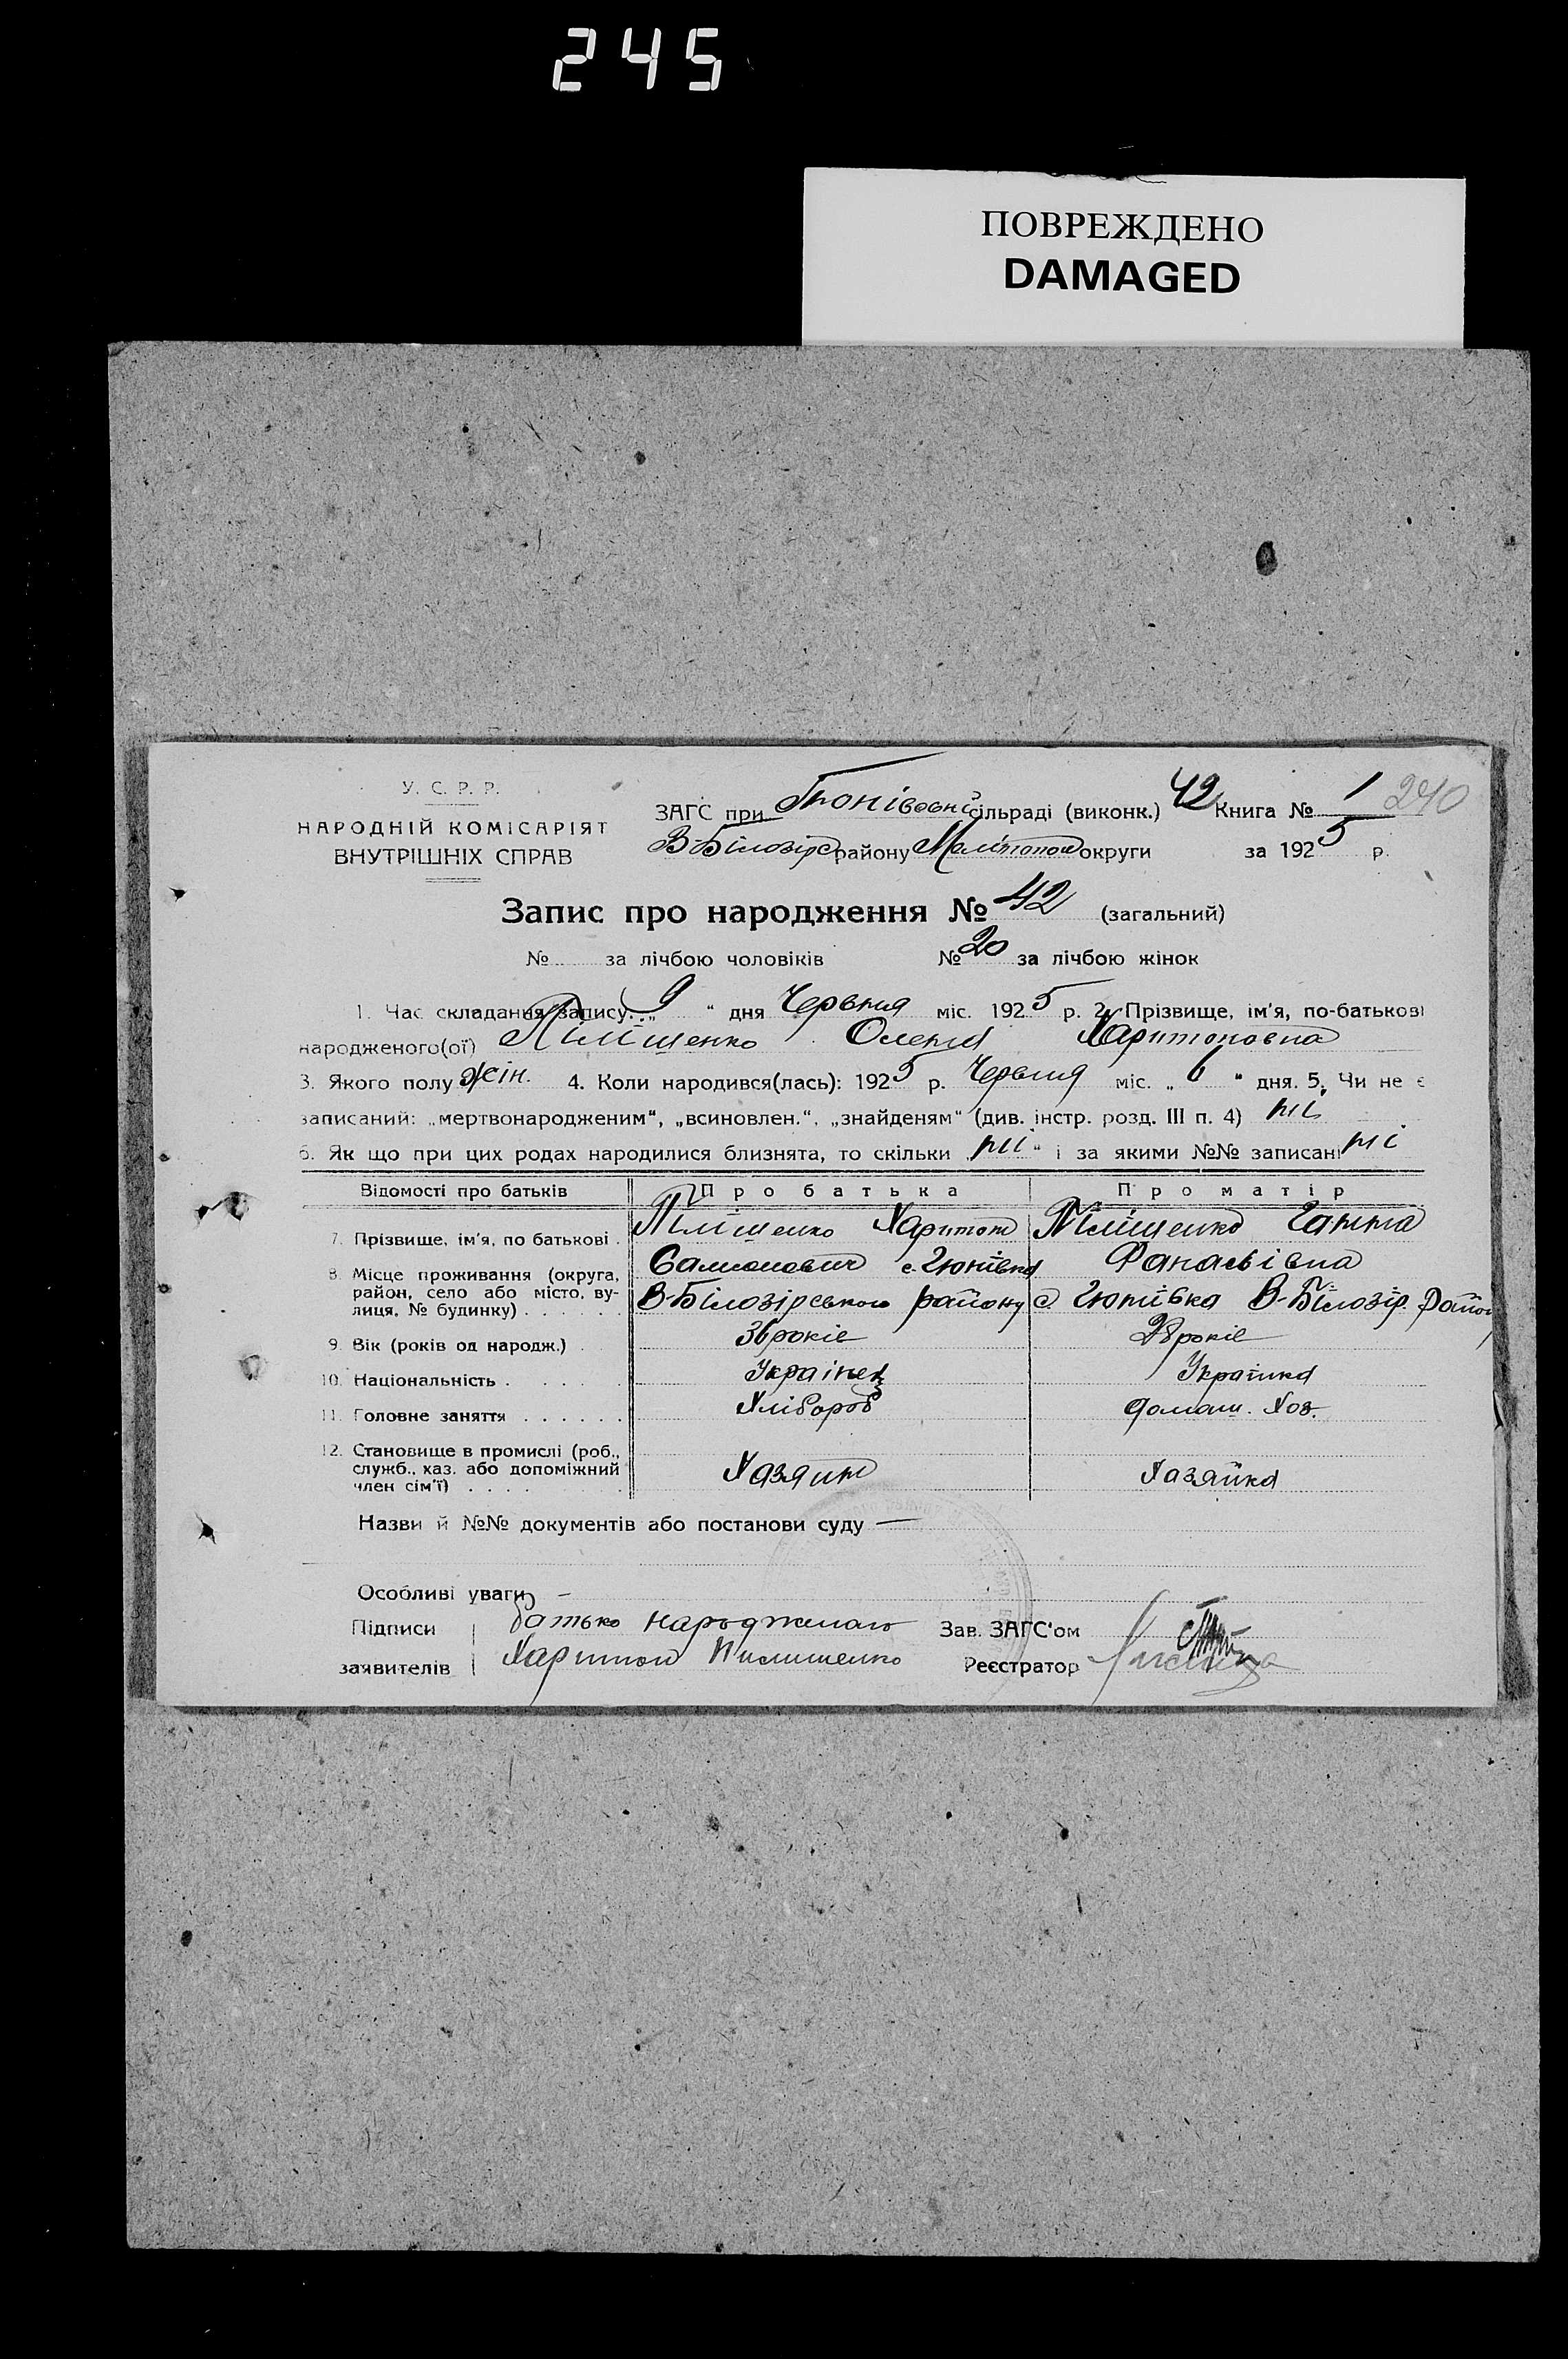 245
ПОВРЕЖДЕНО
DAMAGED
У. С. Р. Р.
НАРОДНІЙ КОМІСАРІЯТ
ВНУТРІШНІХ СПРАВ
ЗАГС при сільраді (виконк.) 42 Книга № 1 240
В-Білозірс району Меліт округи за 1925 р.
Запис про народження № 42 (загальний)
№ за лічбою чоловіків № 20 за лічбою жінок
1. Час складання запису „9" дня Червня міс. 1925 р. 2. Прізвище, ім'я, по-батькові
народженого(ої) Пілїшенко Олена Харитоновна
3. Якого полу жін. 4. Коли народився(лась): 1925 р. Червня міс. „6" дня. 5. Чи не є
записаний: „мертвонародженим", „всиновлен.", „знайденям" (див. інстр. розд. III п. 4) ні
6. Як що при цих родах народилися близнята, то скільки „ні" і за якими №№ записані ні
Відомості про батьків Про батька Про матір
7. Прізвище, ім'я, по батькові . Пілїшенко Харитон Пілїшенко Ганна
8. Місце проживання (округа, район, село або місто, вулиця, № будинку) . . . . . Самсонович с. Гюнівка Фанасівна
В-Білозірського району с Гюнівка В-Білозір. Район
9. Вік (років од народж.) . 36 років 28 років
10. Національність . . . . Українец Українка
11. Головне заняття . . . . . . Хлібороб домаш. Хоз.
12. Становище в промислі (роб., служб., хаз. або допоміжний член сім'ї) . . . . Хазяин Хазяйка
Назви й №№ документів або постанови суду —
Особливі уваги —
Підписи батько Зав. ЗАГС'ом
заявителів Харитон Пилишенко Реєстратор